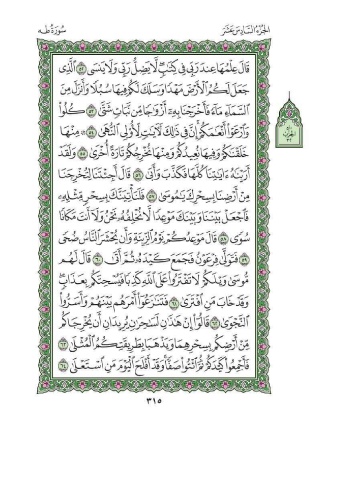 الجزء السادس عشر
سورة طه
قَالَ عِلْمُهَا عِندَ رَبِّي فِي كِتَٰبٍۖ لَّا يَضِلُّ رَبِّي وَلَا يَنسَى ٥٢ ٱلَّذِي
جَعَلَ لَكُمُ ٱلْأَرْضَ مَهْدًا وَسَلَكَ لَكُمْ فِيهَا سُبُلًا وَأَنزَلَ مِنَ
ٱلسَّمَآءِ مَآءً فَأَخْرَجْنَا بِهِۦٓ أَزْوَٰجًا مِّن نَّبَاتٍ شَتَّىٰ ٥٣ كُلُوا۟
وَٱرْعَوْا۟ أَنْعَٰمَكُمْۗ إِنَّ فِي ذَٰلِكَ لَءَايَٰتٍ لِّأُو۟لِي ٱلنُّهَىٰ ٥٤ ۞ مِنْهَا
خَلَقْنَٰكُمْ وَفِيهَا نُعِيدُكُمْ وَمِنْهَا نُخْرِجُكُمْ تَارَةً أُخْرَىٰ ٥٥ وَلَقَدْ
أَرَيْنَٰهُ ءَايَٰتِنَا كُلَّهَا فَكَذَّبَ وَأَبَىٰ ٥٦ قَالَ أَجِئْتَنَا لِتُخْرِجَنَا
مِنْ أَرْضِنَا بِسِحْرِكَ يَٰمُوسَىٰ ٥٧ فَلَنَأْتِيَنَّكَ بِسِحْرٍ مِّثْلِهِۦ
فَٱجْعَلْ بَيْنَنَا وَبَيْنَكَ مَوْعِدًا لَّا نُخْلِفُهُۥ نَحْنُ وَلَآ أَنتَ مَكَانًا
سُوًى ٥٨ قَالَ مَوْعِدُكُمْ يَوْمُ ٱلزِّينَةِ وَأَن يُحْشَرَ ٱلنَّاسُ ضُحًى
٥٩ فَتَوَلَّىٰ فِرْعَوْنُ فَجَمَعَ كَيْدَهُۥ ثُمَّ أَتَىٰ ٦٠ قَالَ لَهُم
مُّوسَىٰ وَيْلَكُمْ لَا تَفْتَرُوا۟ عَلَى ٱللَّهِ كَذِبًا فَيُسْحِتَكُم بِعَذَابٍۖ
وَقَدْ خَابَ مَنِ ٱفْتَرَىٰ ٦١ فَتَنَٰزَعُوٓا۟ أَمْرَهُم بَيْنَهُمْ وَأَسَرُّوا۟
ٱلنَّجْوَىٰ ٦٢ قَالُوٓا۟ إِنْ هَٰذَٰنِ لَسَٰحِرَٰنِ يُرِيدَانِ أَن يُخْرِجَاكُم
مِّنْ أَرْضِكُم بِسِحْرِهِمَا وَيَذْهَبَا بِطَرِيقَتِكُمُ ٱلْمُثْلَىٰ ٦٣
فَأَجْمِعُوا۟ كَيْدَكُمْ ثُمَّ ٱئْتُوا۟ صَفًّاۚ وَقَدْ أَفْلَحَ ٱلْيَوْمَ مَنِ ٱسْتَعْلَىٰ ٦٤
٣١٥